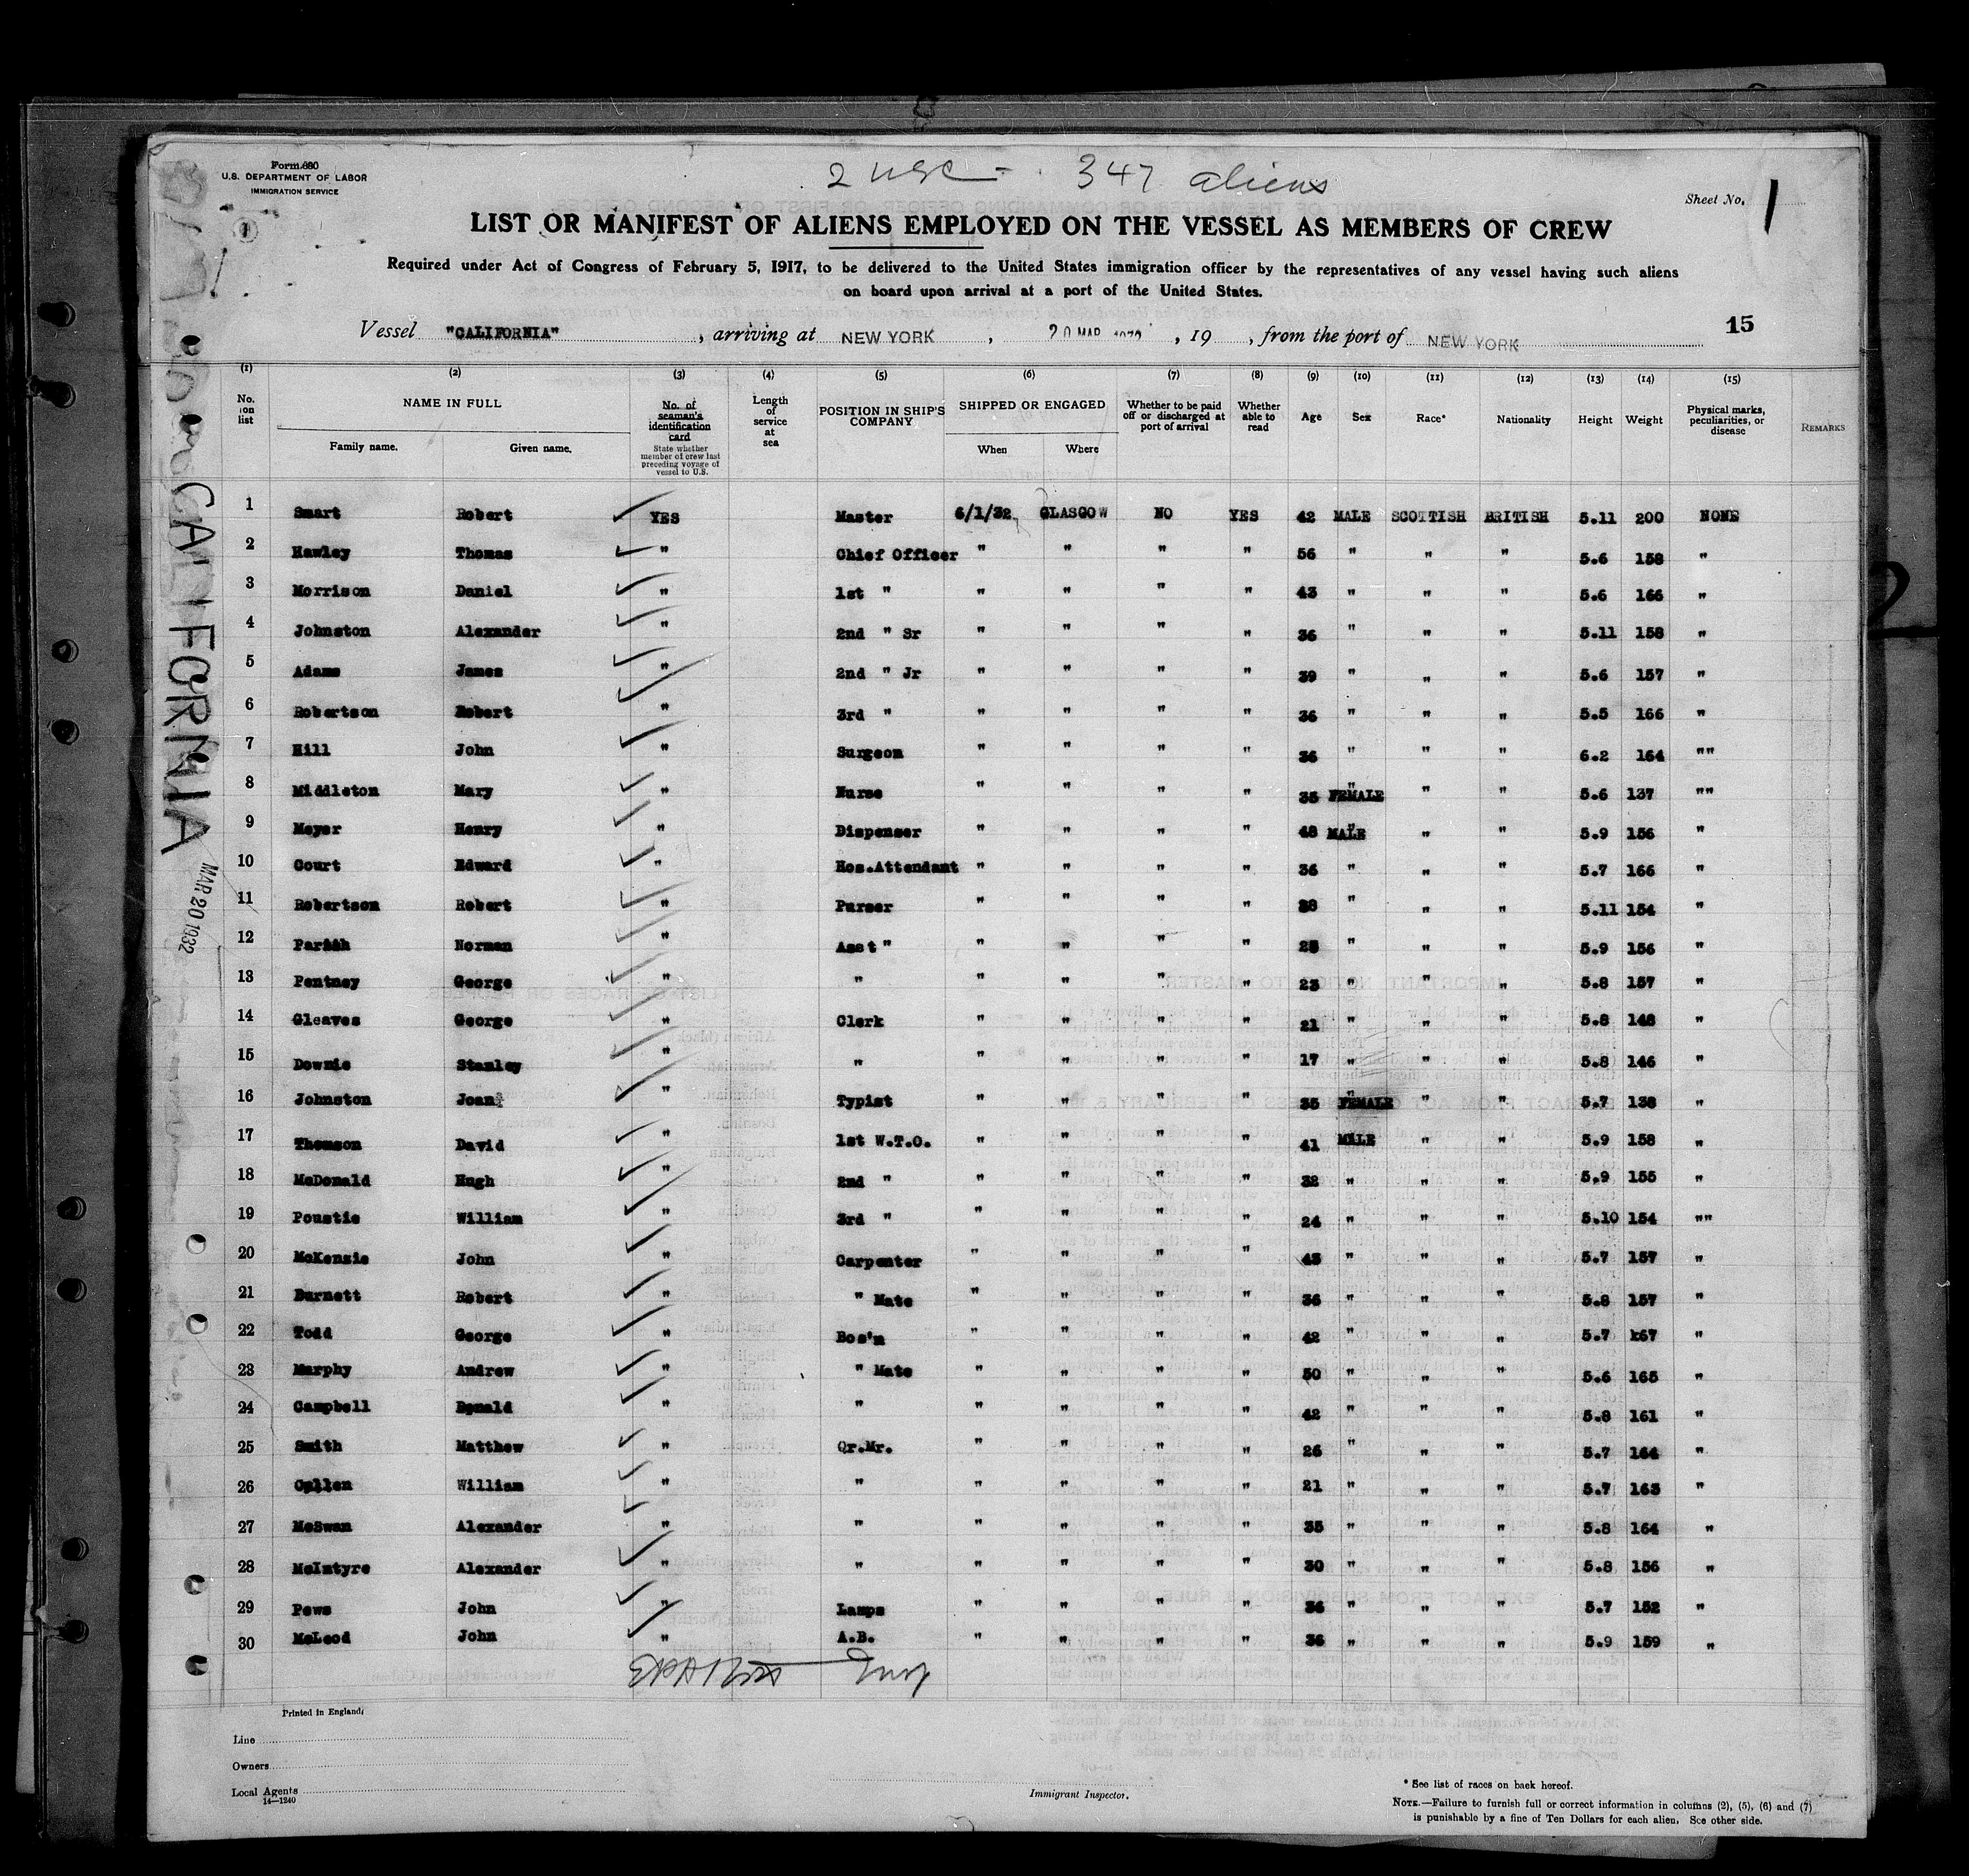 Form 680
U.S. DEPARTMENT OF LABOR
IMMIGRATION SERVICE
2 USC - 347 aliens
Sheet No. 1
LIST OR MANIFEST OF ALIENS EMPLOYED ON THE VESSEL AS MEMBERS OF CREW
Required under Act of Congress of February 5, 1917, to be delivered to the United States immigration officer by the representatives of any vessel having such aliens
on board upon arrival at a port of the United States.
Vessel "CALIFORNIA", arriving at NEW YORK, 20 MAR 1932, 19 , from the port of NEW YORK
15
(1) (2) (3) (4) (5) (6) (7) (8) (9) (10) (11) (12) (13) (14) (15)
No. on list
NAME IN FULL
Family name. Given name.
No. of seaman's identification card
State whether member of crew last preceding voyage of vessel to U.S.
Length of service at sea
POSITION IN SHIP'S COMPANY
SHIPPED OR ENGAGED
When Where
Whether to be paid off or discharged at port of arrival
Whether able to read
Age Sex Race* Nationality Height Weight
Physical marks, peculiarities, or disease
REMARKS
1 Smart Robert YES Master 6/1/32 GLASGOW NO YES 42 MALE SCOTTISH BRITISH 5.11 200 NONE
2 Hawley Thomas " Chief Officer " " " " 56 " " " 5.6 158 "
3 Morrison Daniel " 1st " " " " " 43 " " " 5.6 166 "
4 Johnston Alexander " 2nd " Sr " " " " 36 " " " 5.11 158 "
5 Adams James " 2nd " Jr " " " " 39 " " " 5.6 157 "
6 Robertson Robert " 3rd " " " " " 36 " " " 5.5 166 "
7 Hill John " Surgeon " " " " 36 " " " 6.2 164 ""
8 Middleton Mary " Nurse " " " " 35 FEMALE " " 5.6 137 ""
9 Meyer Henry " Dispenser " " " " 48 MALE " " 5.9 156 "
10 Court Edward " Hos.Attendant " " " " 36 " " " 5.7 166 "
11 Robertson Robert " Purser " " " " 38 " " " 5.11 154 "
12 Parish Norman " Asst " " " " " " " " 5.9 156 "
13 Pentney George " " " " " " 23 " " " 5.8 157 "
14 Gleaves George " Clerk " " " " 21 " " " 5.8 148 "
15 Downie Stanley " " " " " " 17 " " " 5.8 146 "
16 Johnston Joan " Typist " " " " 35 FEMALE " " 5.7 138 "
17 Thomson David " 1st W.T.O. " " " " 41 MALE " " 5.9 158 "
18 McDonald Hugh " 2nd " " " " " 32 " " " 5.9 155 "
19 Poustie William " 3rd " " " " " 24 " " " 5.10 154 ""
20 McKenzie John " Carpenter " " " " 45 " " " 5.7 157 "
21 Burnett Robert " " Mate " " " " 36 " " " 5.8 157 "
22 Todd George " Bos'n " " " " 42 " " " 5.7 k67 "
23 Murphy Andrew " " Mate " " " " 50 " " " 5.6 165 "
24 Campbell Donald " " " " " " 42 " " " 5.8 161 "
25 Smith Matthew " Qr.Mr. " " " " 26 " " " 5.7 164 "
26 Cullen William " " " " " " 21 " " " 5.7 163 "
27 McSwan Alexander " " " " " " 35 " " " 5.8 164 "
28 McIntyre Alexander " " " " " " 30 " " " 5.8 156 "
29 Pews John " Lamps " " " " 36 " " " 5.7 152 "
30 McLeod John " A.B. " " " " 36 " " " 5.9 159 "
CALIFORNIA
MAR 20 1932
2
Printed in England.
Line
Owners
Local Agents
14—1240
Immigrant Inspector.
* See list of races on back hereof.
NOTE.—Failure to furnish full or correct information in columns (2), (5), (6) and (7)
is punishable by a fine of Ten Dollars for each alien. See other side.